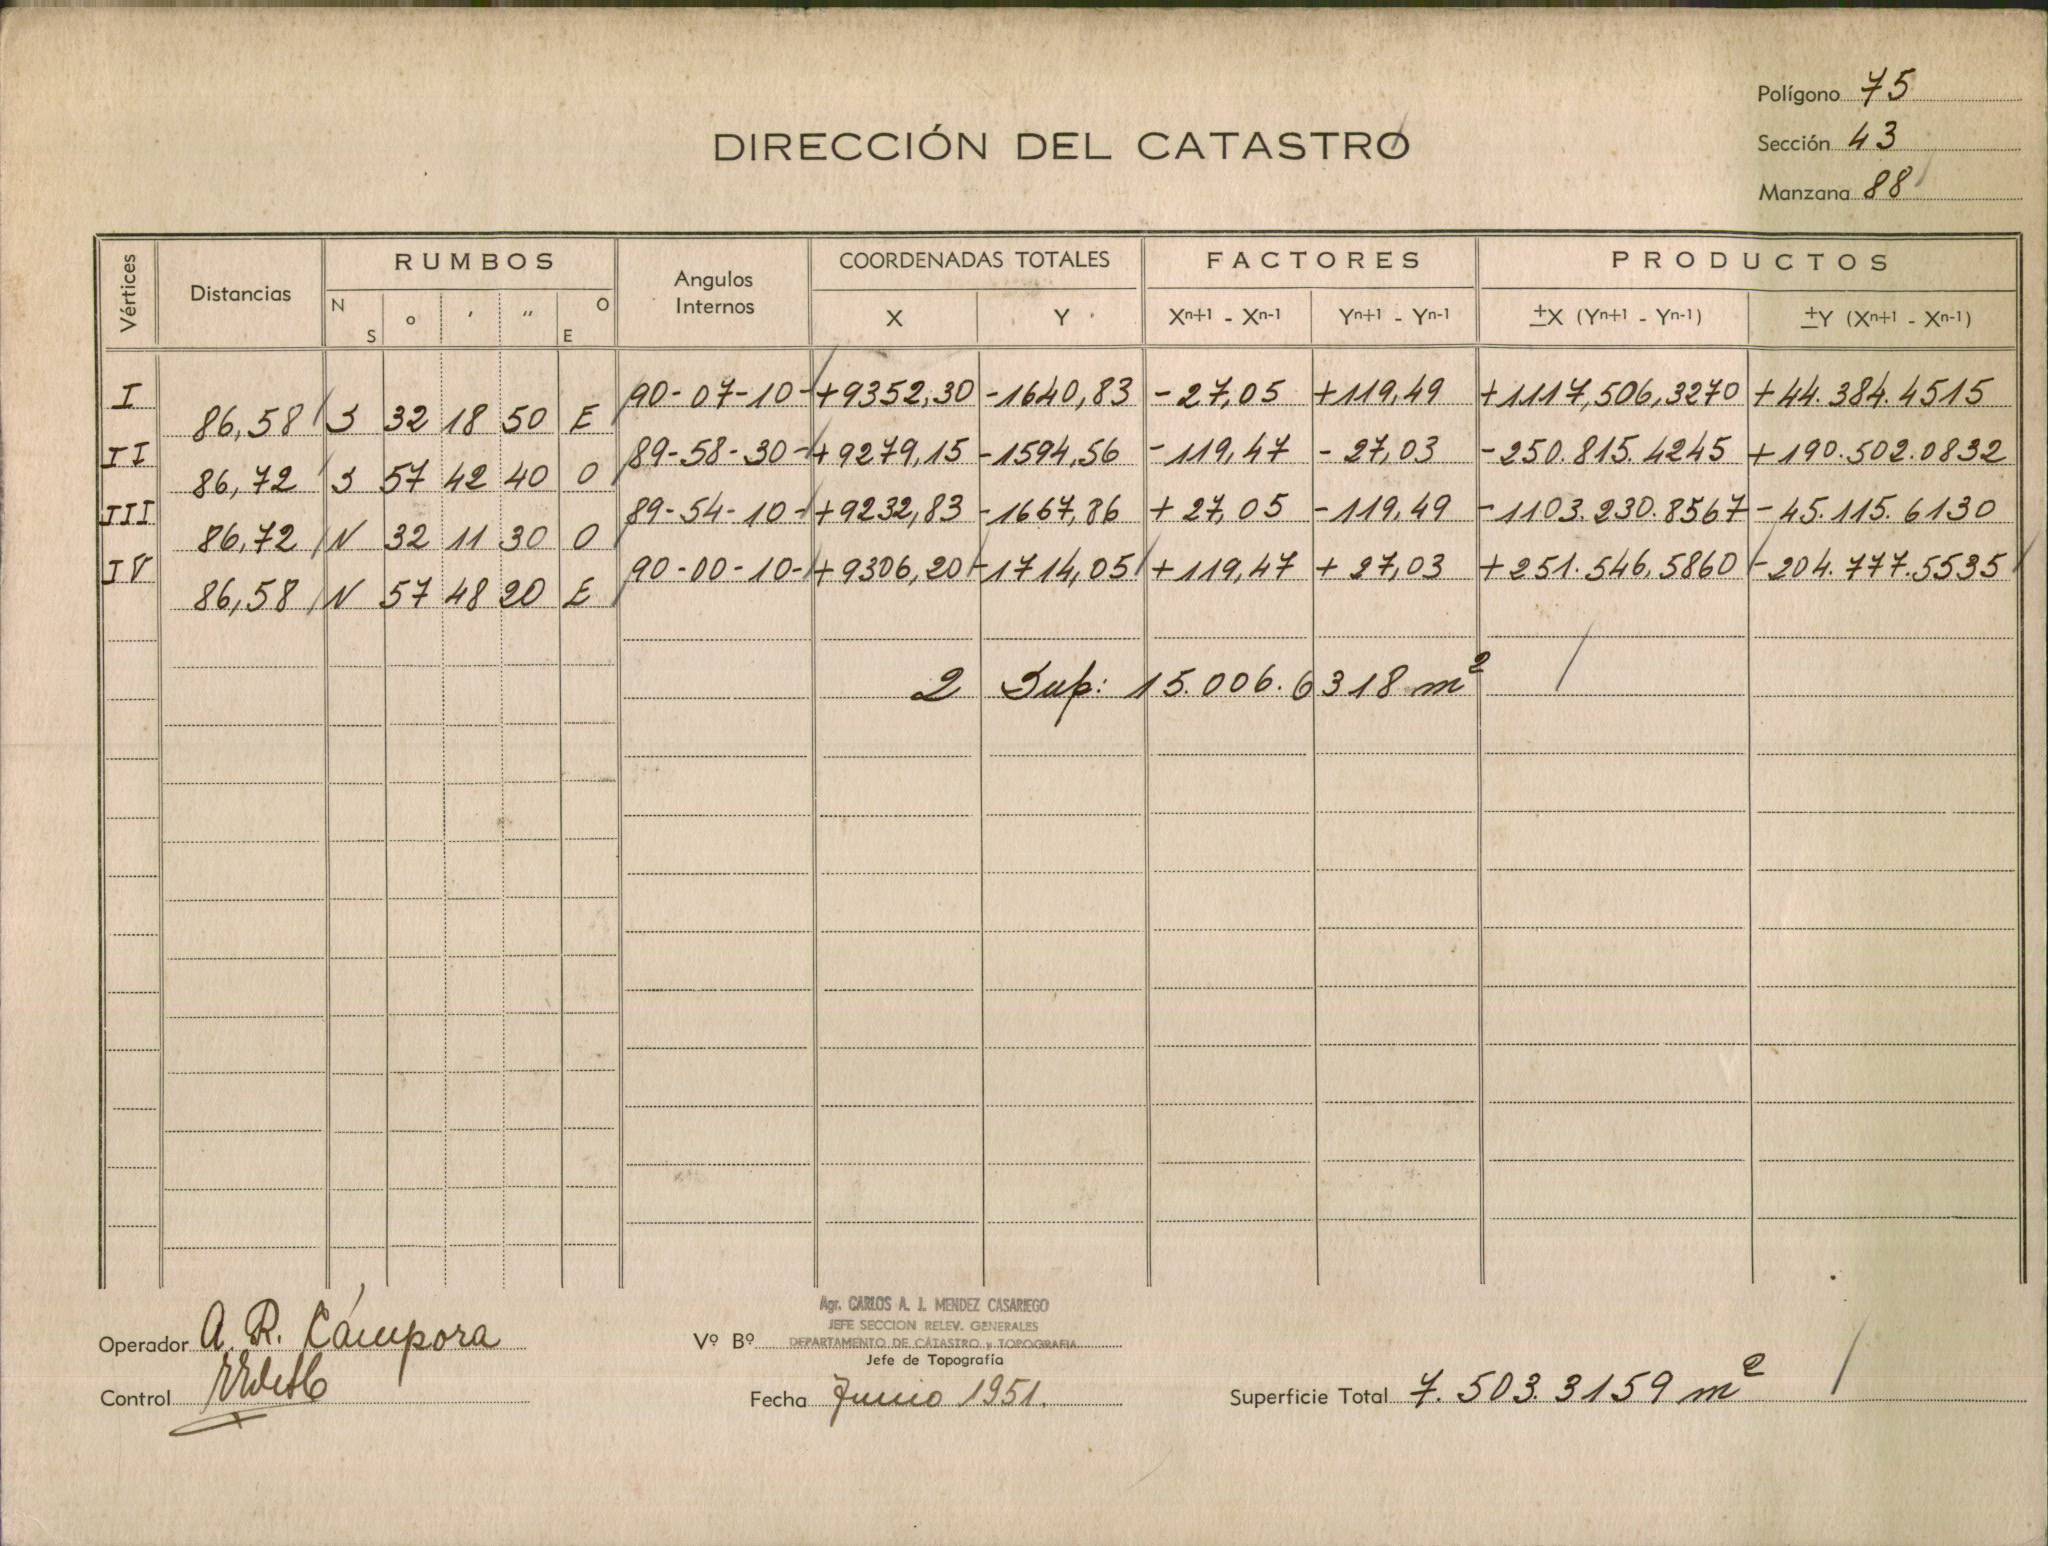 Polígono 75
DIRECCIÓN DEL CATASTRO
Sección 43
Manzana 88
Vértices Distancias RUMBOS Angulos Internos COORDENADAS TOTALES FACTORES PRODUCTOS
N S ° ' " O E X Y Xn+1 - Xn-1 Yn+1 - Yn-1 ±X (Yn+1 - Yn-1) ±Y (Xn+1 - Xn-1)
I 90-07-10- +9352,30 -1640,83 -27,05 +119,49 +1117,506,3270 +44.384.4515
86,58 S 32 18 50 E
II 89-58-30- +9279,15 -1594,56 -119,47 -27,03 -250.815.4245 +190.502.0832
86,72 S 57 42 40 O
III 89-54-10- +9232,83 -1667,86 +27,05 -119,49 -1103.230.8567 -45.115.6130
86,72 N 32 11 30 O
IV 90-00-10- +9306,20 -1714,05 +119,47 +27,03 +251.546,5860 -204.777.5535
86,58 N 57 48 20 E
2 Sup: 15.006.6318 m²
Agr. CARLOS A. J. MENDEZ CASARIEGO
JEFE SECCION RELEV. GENERALES
Operador A. R. Cámpora Vº Bº DEPARTAMENTO DE CATASTRO y TOPOGRAFIA
Jefe de Topografía
Control Fecha Junio 1951. Superficie Total 7.503.3159 m²